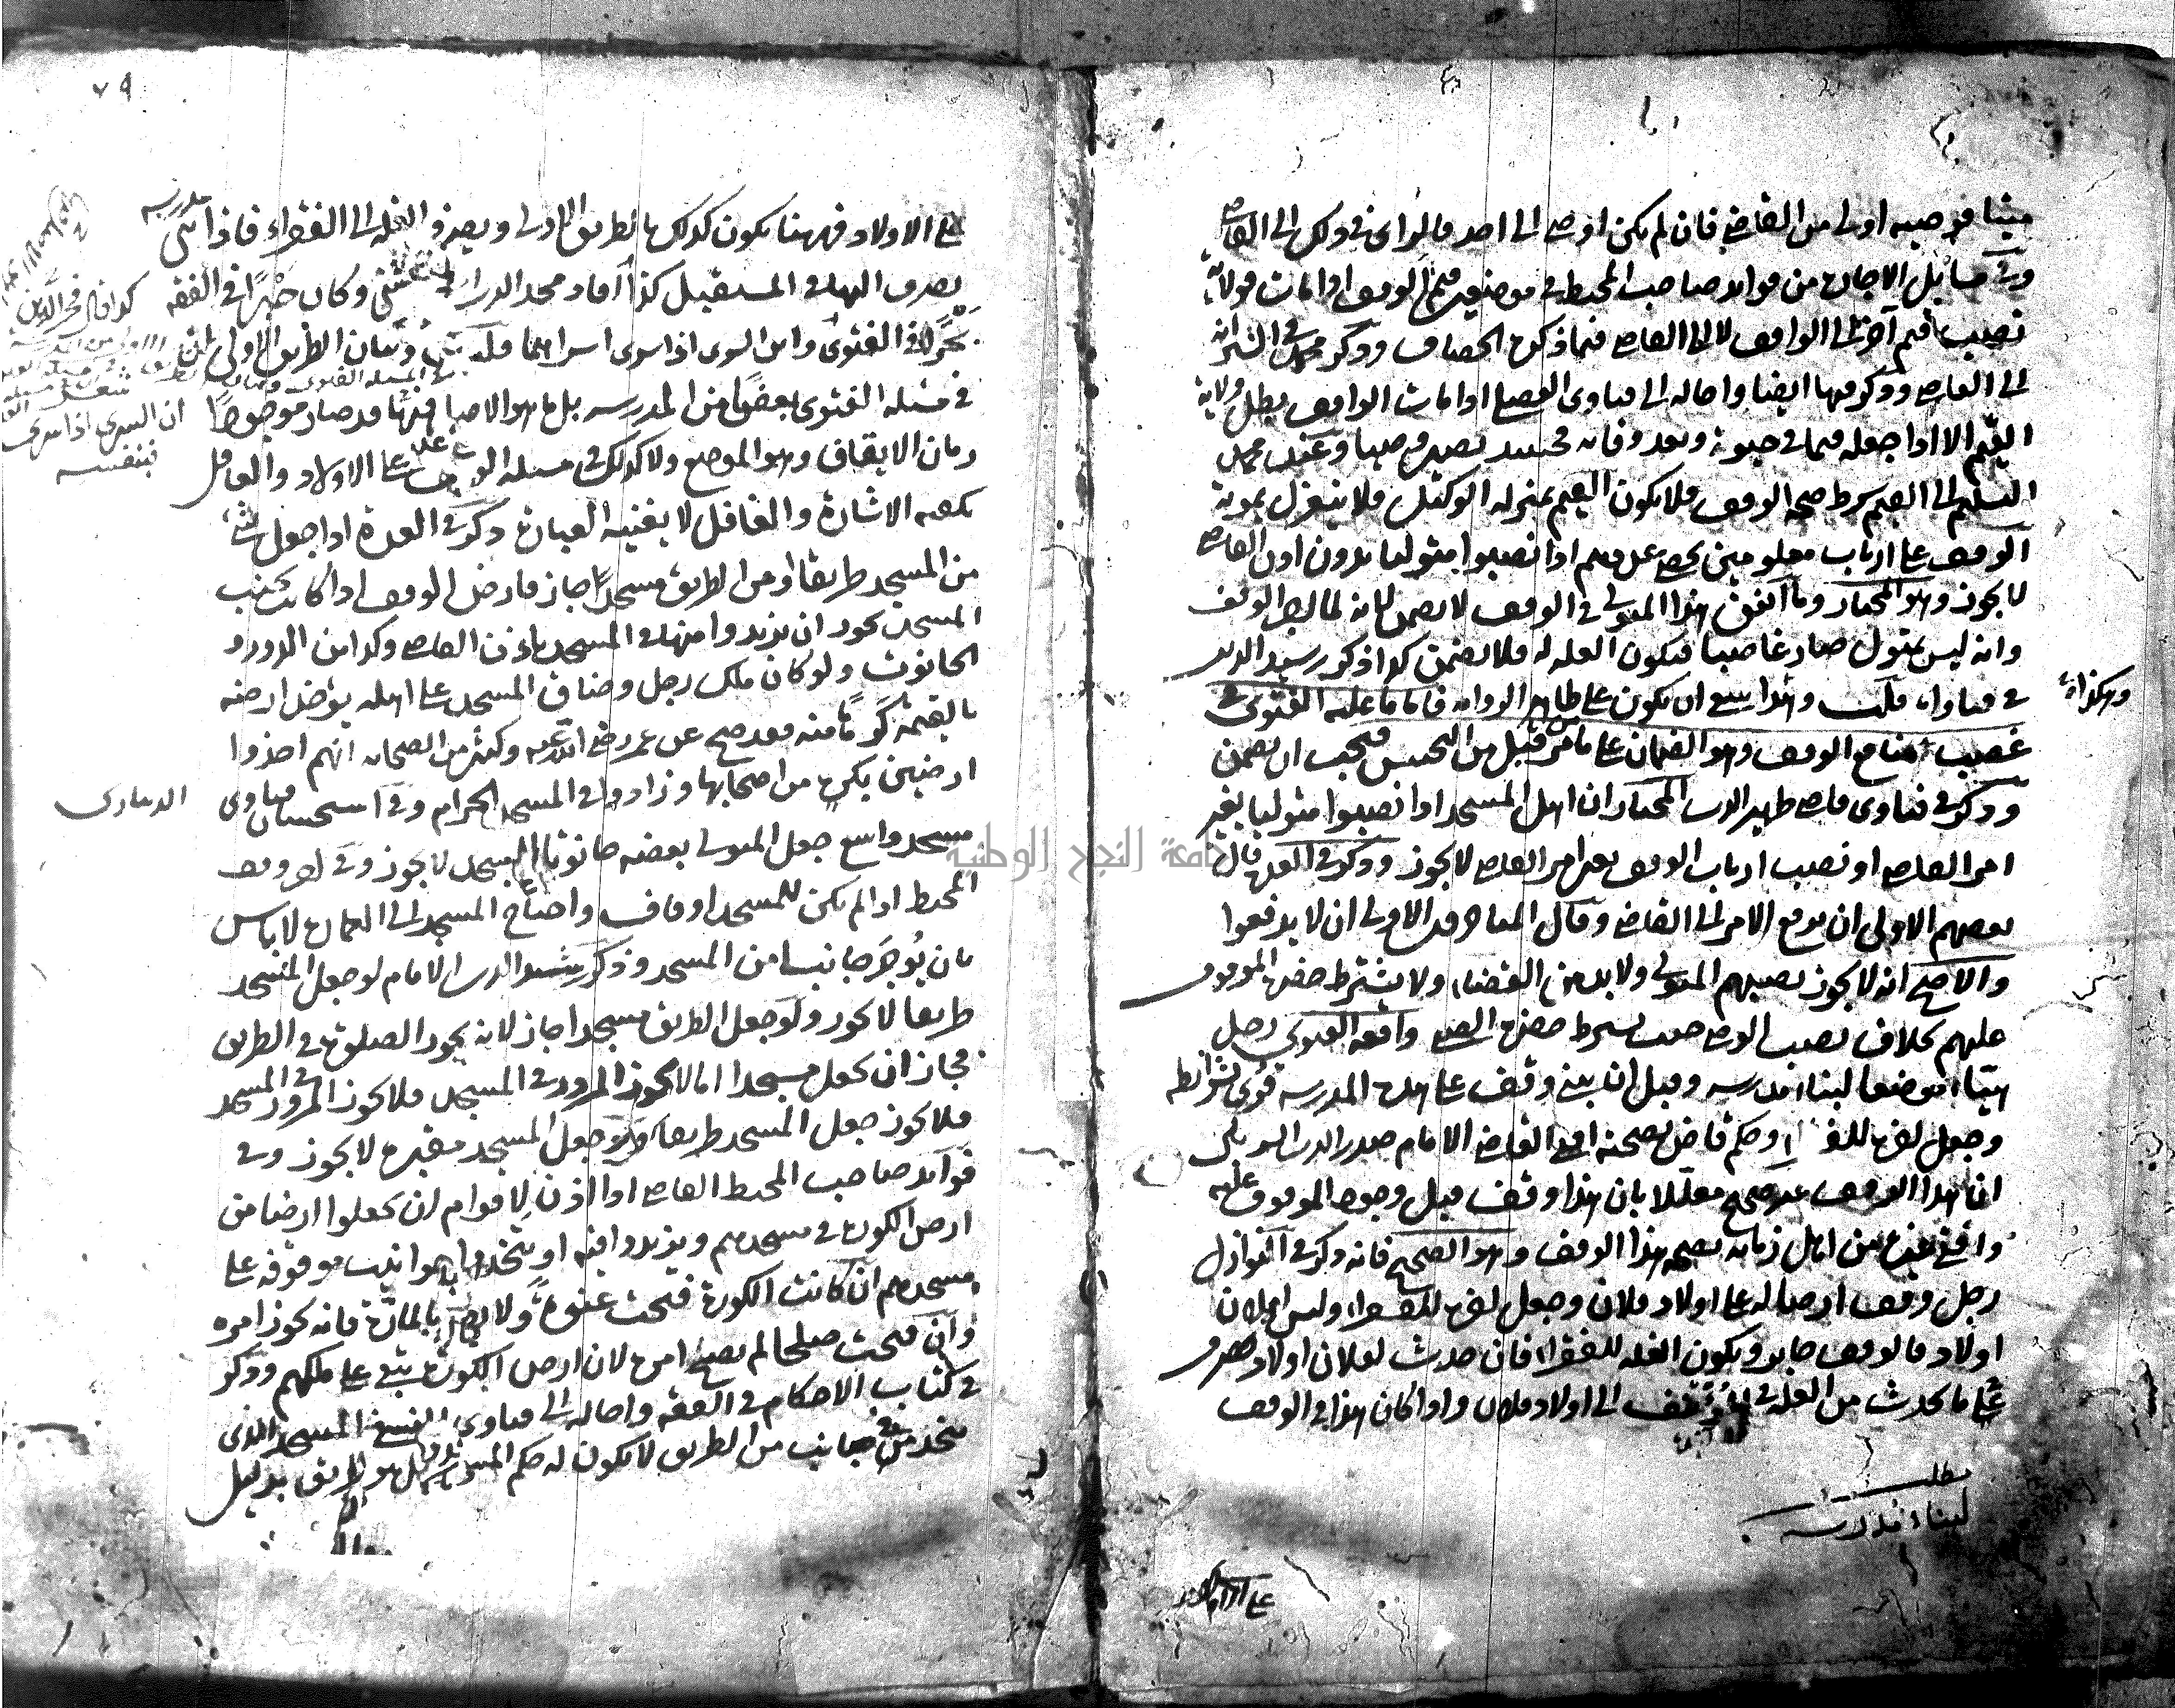 ميتا فوصيه اولى من القاضي فان لم يكن اوصى الى احد فالراى في ذلك الى القاضى
وفي مسايل الاجارة من فوايد صاحب المحيط في موضعين قيم الوقف اذا مات فولاية
نصيب قيم آخر الى الواقف لا الى القاضى فيما ذكره الخصاف وذكر محمد في السير انه
الى القاضى وذكر فيها ايضا واحاله الى فتاوى الفضلى اذا مات الواقف يبطل ولاية
القيم الا اذا جعله قيما في حيوته وبعد وفاته فحينئذ يصير وصيا وعند محمد
التسليم الى القيم شرط صحة الوقف فلا يكون القيم بمنزلة الوكيل فلا ينعزل بموته
الوقف على ارباب معلومين يحصى عددهم اذا نصبوا متوليا بدون اذن القاضى
لا يجوز وهو المختار وما انفق هذا المتولى في الوقف لا يضمن لانه لما لم الوقف
وانه ليس بمتول صار غاصبا فيكون الغلة له فلا يضمن كذا ذكر رشيد الدين
وهكذا
في فتاواه قلت وهذا ينبغي ان يكون على ظاهر الرواية فاما ما عليه الفتوى في
غصب منافع الوقف وهو الضمان على ما مر من قبل من التحسين فيجب ان يضمن
وذكر في فتاوى قاضى ظهير الدين المختار ان اهل المسجد اذا نصبوا متوليا بغير
امر القاضى او نصب ارباب الوقف بغير امر القاضى لا يجوز وذكر في العدة قال
بعضهم الاولى ان يرفع الامر الى القاضي وقال المتاخرون الاولى ان لا يدفعوا
والاصح انه لا يجوز نصبهم المتولى ولا بد من القضاء ولا يشترط حضرة الموقوف
عليهم بخلاف نصب الوصى حيث يشترط حضرة الصبي واقعة الفتوى رجل
هيّاء موضعا لبناء مدرسه وقبل ان يبنى وقف على هذه المدرسه قرى بشرائطه
وجعل آخره للفقراء وحكم قاض بصحته افتى القاضى الامام صدر الدين
ان هذا الوقف غير صحيح معللا بان هذا وقف قبل وجود الموقوف عليه
وافتى غيره من اهل زمانه بصحة هذا الوقف وهو الصحيح فانه ذكر في النوازل
رجل وقف ارضا له على اولاد فلان وجعل آخره للفقراء وليس لفلان
اولاد فالوقف جايز ويكون الغلة للفقراء فان حدث لفلان اولاد يصرف
ما يحدث من الغلة في المستقبل الى اولاد فلان واذا كان هذا في الوقف
مطلب
لبناء مدرسه
على الاولاد
٧٩
على الاولاد فههنا يكون كذلك بالطريق الاولى ويصرف الغلة الى الفقراء فاذا بنى مدرسه
يصرف اليها في المستقبل كذا افاد محمد الدين وكان حبرًا في الفقه
في مسئلة الفتوى بعضًا من المدرسه بل ما هو الاصل فيها قد صار موجودًا
زمان الايقاف وهو الموضع ولا كذلك في مسئلة الوقف على الاولاد والعاقل
يكفيه الاشارة والغافل لا يغنيه العبارة ذكر في العدة اذا جعل شيء
من المسجد طريقا او من الطريق مسجدًا جاز فارض الوقف اذا كانت بجنب
المسجد يجوز ان يزيدوا منها في المسجد باذن القاضى وكذا من الدور و
الحانوت ولو كان ملك رجل وضاق المسجد على اهله يؤخذ ارضه
بالقيمة كرهًا منه فقد صح عن عمر رضي الله عنه وكثير من الصحابة انهم اخذوا
ارضين بكره من اصحابها وزادوا في المسجد الحرام وفي استحسان فتاوى
الدينارى
مسجد واسع جعل المتولى بعضه حانوتا للمسجد لا يجوز وفي آخر وقف
المحيط اذا لم يكن للمسجد اوقاف واحتاج المسجد الى العمارة لا باس
بان يُوجَر جانبا من المسجد وذكر رشيد الدين الامام لو جعل المسجد
طريقا لا يجوز ولو جعل الطريق مسجدا جاز لانه يجوز الصلوة في الطريق
فجاز ان يجعل مسجدا اما لا يجوز المرور في المسجد فلا يجوز المرور في المسجد
فلا يجوز جعل المسجد طريقا ولا جعل المسجد مقبرة لا يجوز وفي
فوايد صاحب المحيط القاضى اذا اذن لاقوام ان يجعلوا ارضا من
ارض الكورة في مسجدهم ويزيدوا فيه او يتخذوها حوانيت موقوفة على
مسجدهم ان كانت الكورة فتحت عنوة ولا يضر بالمارة فانه يجوز امره
وان فتحت صلحا لم يصح امره لان ارض الكورة تبقى على ملكهم وذكر
في كتاب الاحكام في الفقه واحاله الى فتاوى النسفي المسجد الذى
يتخذ من جانب من الطريق لا يكون له حكم المسجد بل هو طريق بدليل